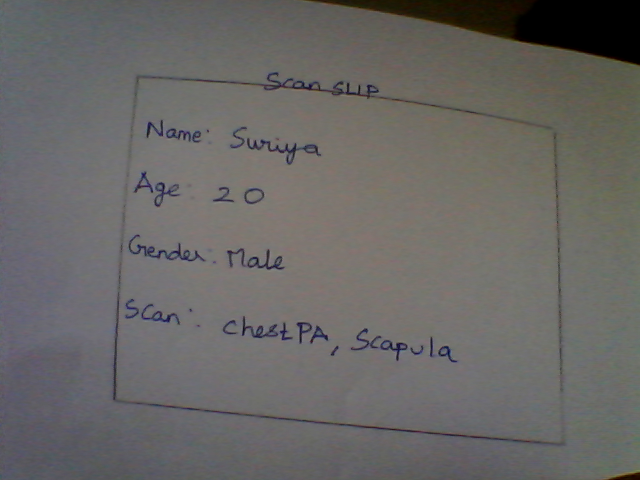 Scan SLIP
Name: Suriya
Age: 20
Gender: Male
Scan: chestPA, Scapula